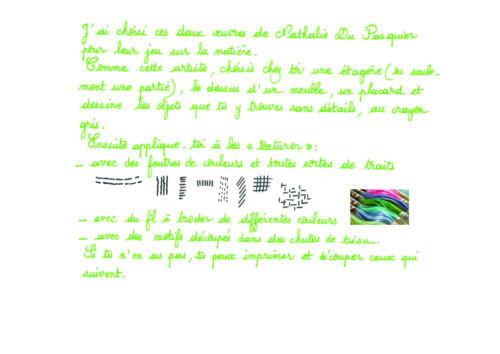 J'ai choisi ces deux œuvres de Nathalie Du Pasquier
pour leur jeu sur la matière.
Comme cette artiste, choisis chez toi une étagère (ou seule-
ment une partie), le dessus d'un meuble, un placard et
dessine les objets que tu y trouves sans détails, au crayon
gris.
Ensuite applique-toi à les « texturer »:
- avec des feutres de couleurs et toutes sortes de traits
- avec du fil à broder de différentes couleurs
- avec des motifs découpés dans des chutes de tissu...
Si tu n'en as pas, tu peux imprimer et découper ceux qui
suivent.